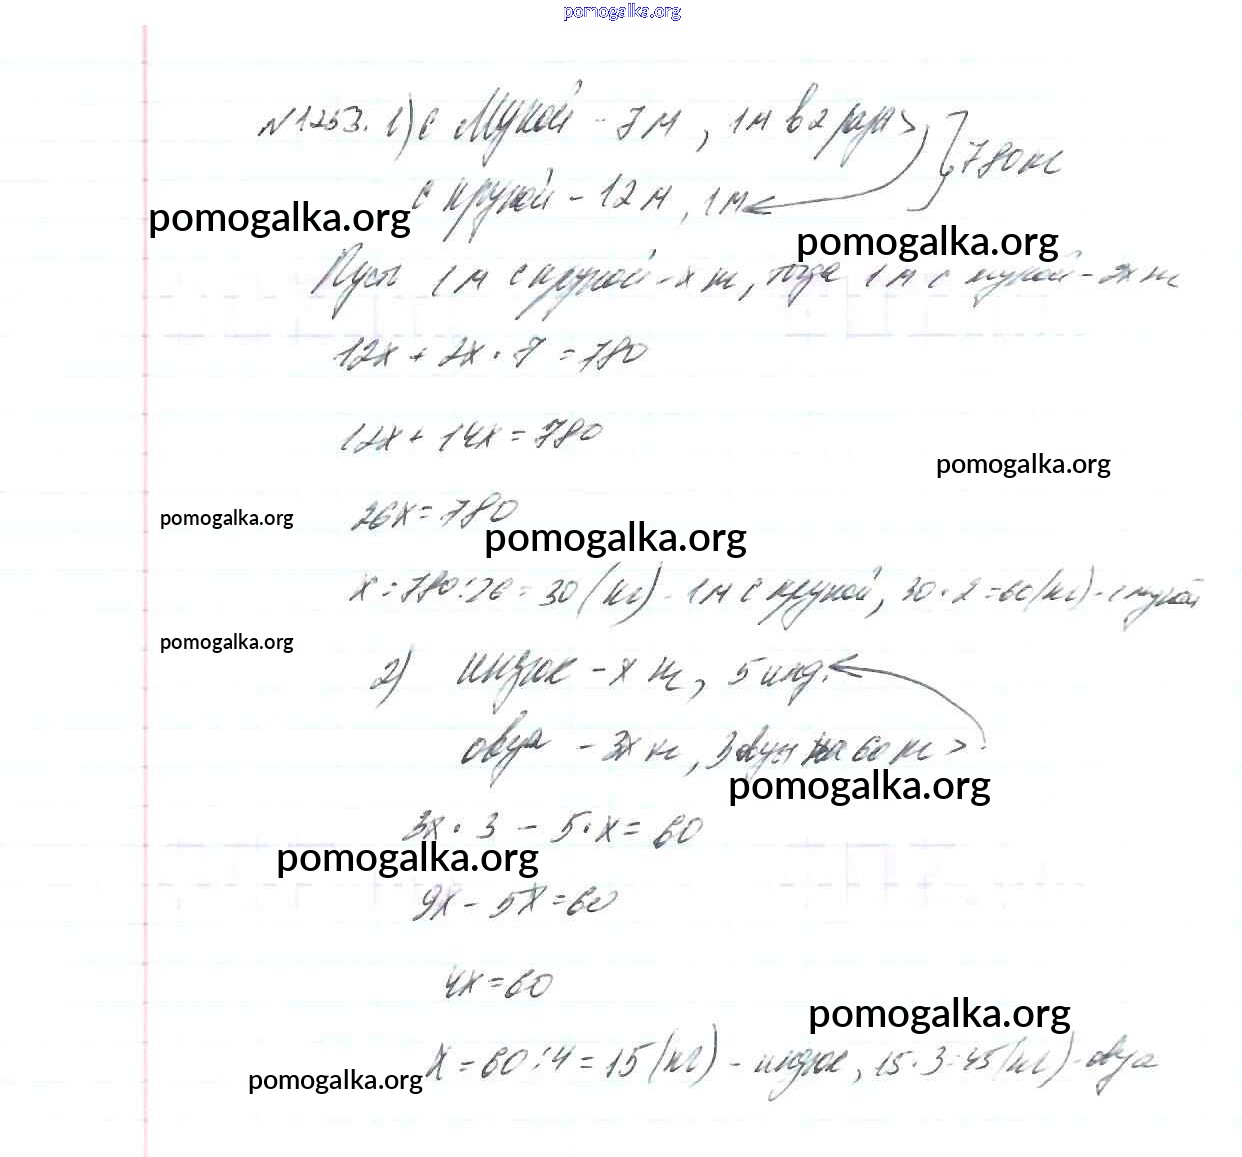 pomogalka.org
N1253. 1) с мукой - 7 м, 1м в 2 раза > } 780 кг
с крупой - 12 м, 1 м
pomogalka.org
pomogalka.org
Пусть 1 м с крупой - x кг, тогда 1 м с мукой - 2x кг
12x + 2x · 7 = 780
12x + 14x = 780
pomogalka.org
26x = 780
pomogalka.org
pomogalka.org
x = 780:26 = 30 (кг) - 1 м с крупой, 30 · 2 = 60 (кг) - с мукой
pomogalka.org
2) индюк - x кг, 5 инд.
овца - 3x кг, 3 овцы на 60 кг >
pomogalka.org
3x · 3 - 5 · x = 60
pomogalka.org
9x - 5x = 60
4x = 60
pomogalka.org
x = 60:4 = 15 (кг) - индюк, 15 · 3 = 45 (кг) - овца
pomogalka.org